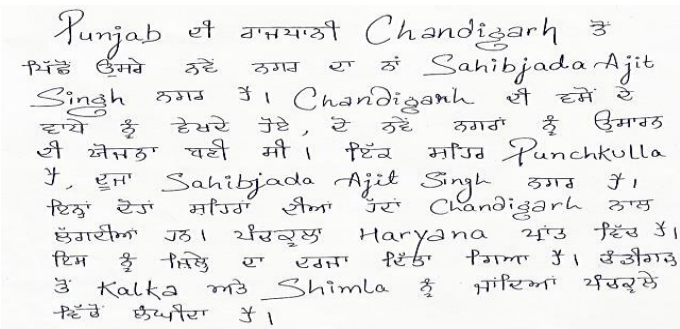 Punjab ਦੀ ਰਾਜਧਾਨੀ Chandigarh ਤੋਂ
ਪਿੱਛੋਂ ਉਸਰੇ ਨਵੇਂ ਨਗਰ ਦਾ ਨਾਂ Sahibjada Ajit
Singh ਨਗਰ ਹੈ। Chandigarh ਦੀ ਵਸੋਂ ਦੇ
ਵਾਧੇ ਨੂੰ ਵੇਖਦੇ ਹੋਏ, ਦੋ ਨਵੇਂ ਨਗਰਾਂ ਨੂੰ ਉਸਾਰਨ
ਦੀ ਯੋਜਨਾ ਬਣੀ ਸੀ। ਇੱਕ ਸ਼ਹਿਰ Punchkulla
ਹੈ, ਦੂਜਾ Sahibjada Ajit Singh ਨਗਰ ਹੈ।
ਇਨਾਂ ਦੋਹਾਂ ਸ਼ਹਿਰਾਂ ਦੀਆਂ ਹੱਦਾਂ Chandigarh ਨਾਲ
ਲੱਗਦੀਆਂ ਹਨ। ਪੰਚਕੂਲਾ Haryana ਪ੍ਰਾਂਤ ਵਿੱਚ ਹੈ।
ਇਸ ਨੂੰ ਜ਼ਿਲੇ ਦਾ ਦਰਜਾ ਦਿੱਤਾ ਗਿਆ ਹੈ। ਚੰਡੀਗੜ
ਤੋਂ Kalka ਅਤੇ Shimla ਨੂੰ ਜਾਂਦਿਆਂ ਪੰਚਕੂਲੇ
ਵਿੱਚੋਂ ਲੰਘੀਦਾ ਹੈ।